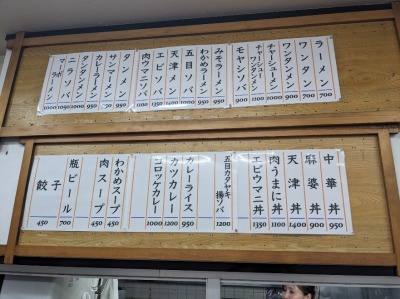 ラーメン 700
ワンタン 700
ワンタンメン 900
チャーシューメン 1000
チャーシューワンタンメン 1200
モヤシソバ 900
みそラーメン 950
わかめラーメン 950
五目ソバ 1000
天津メン
エビソバ
肉ウマニソバ
タンメン 950
サンマーメン 950
カレーラーメン
タンタンメン 1000
ニララーメン 1050
マーボラーメン 1000
中華丼 950
麻婆丼 900
天津丼 1400
肉うまに丼 1100
エビウマニ丼 1350
五目カタヤキ揚ソバ 1200
カレーライス 950
カツカレー 1200
コロッケカレー 1000
わかめスープ 450
肉スープ 450
瓶ビール 700
餃子 450